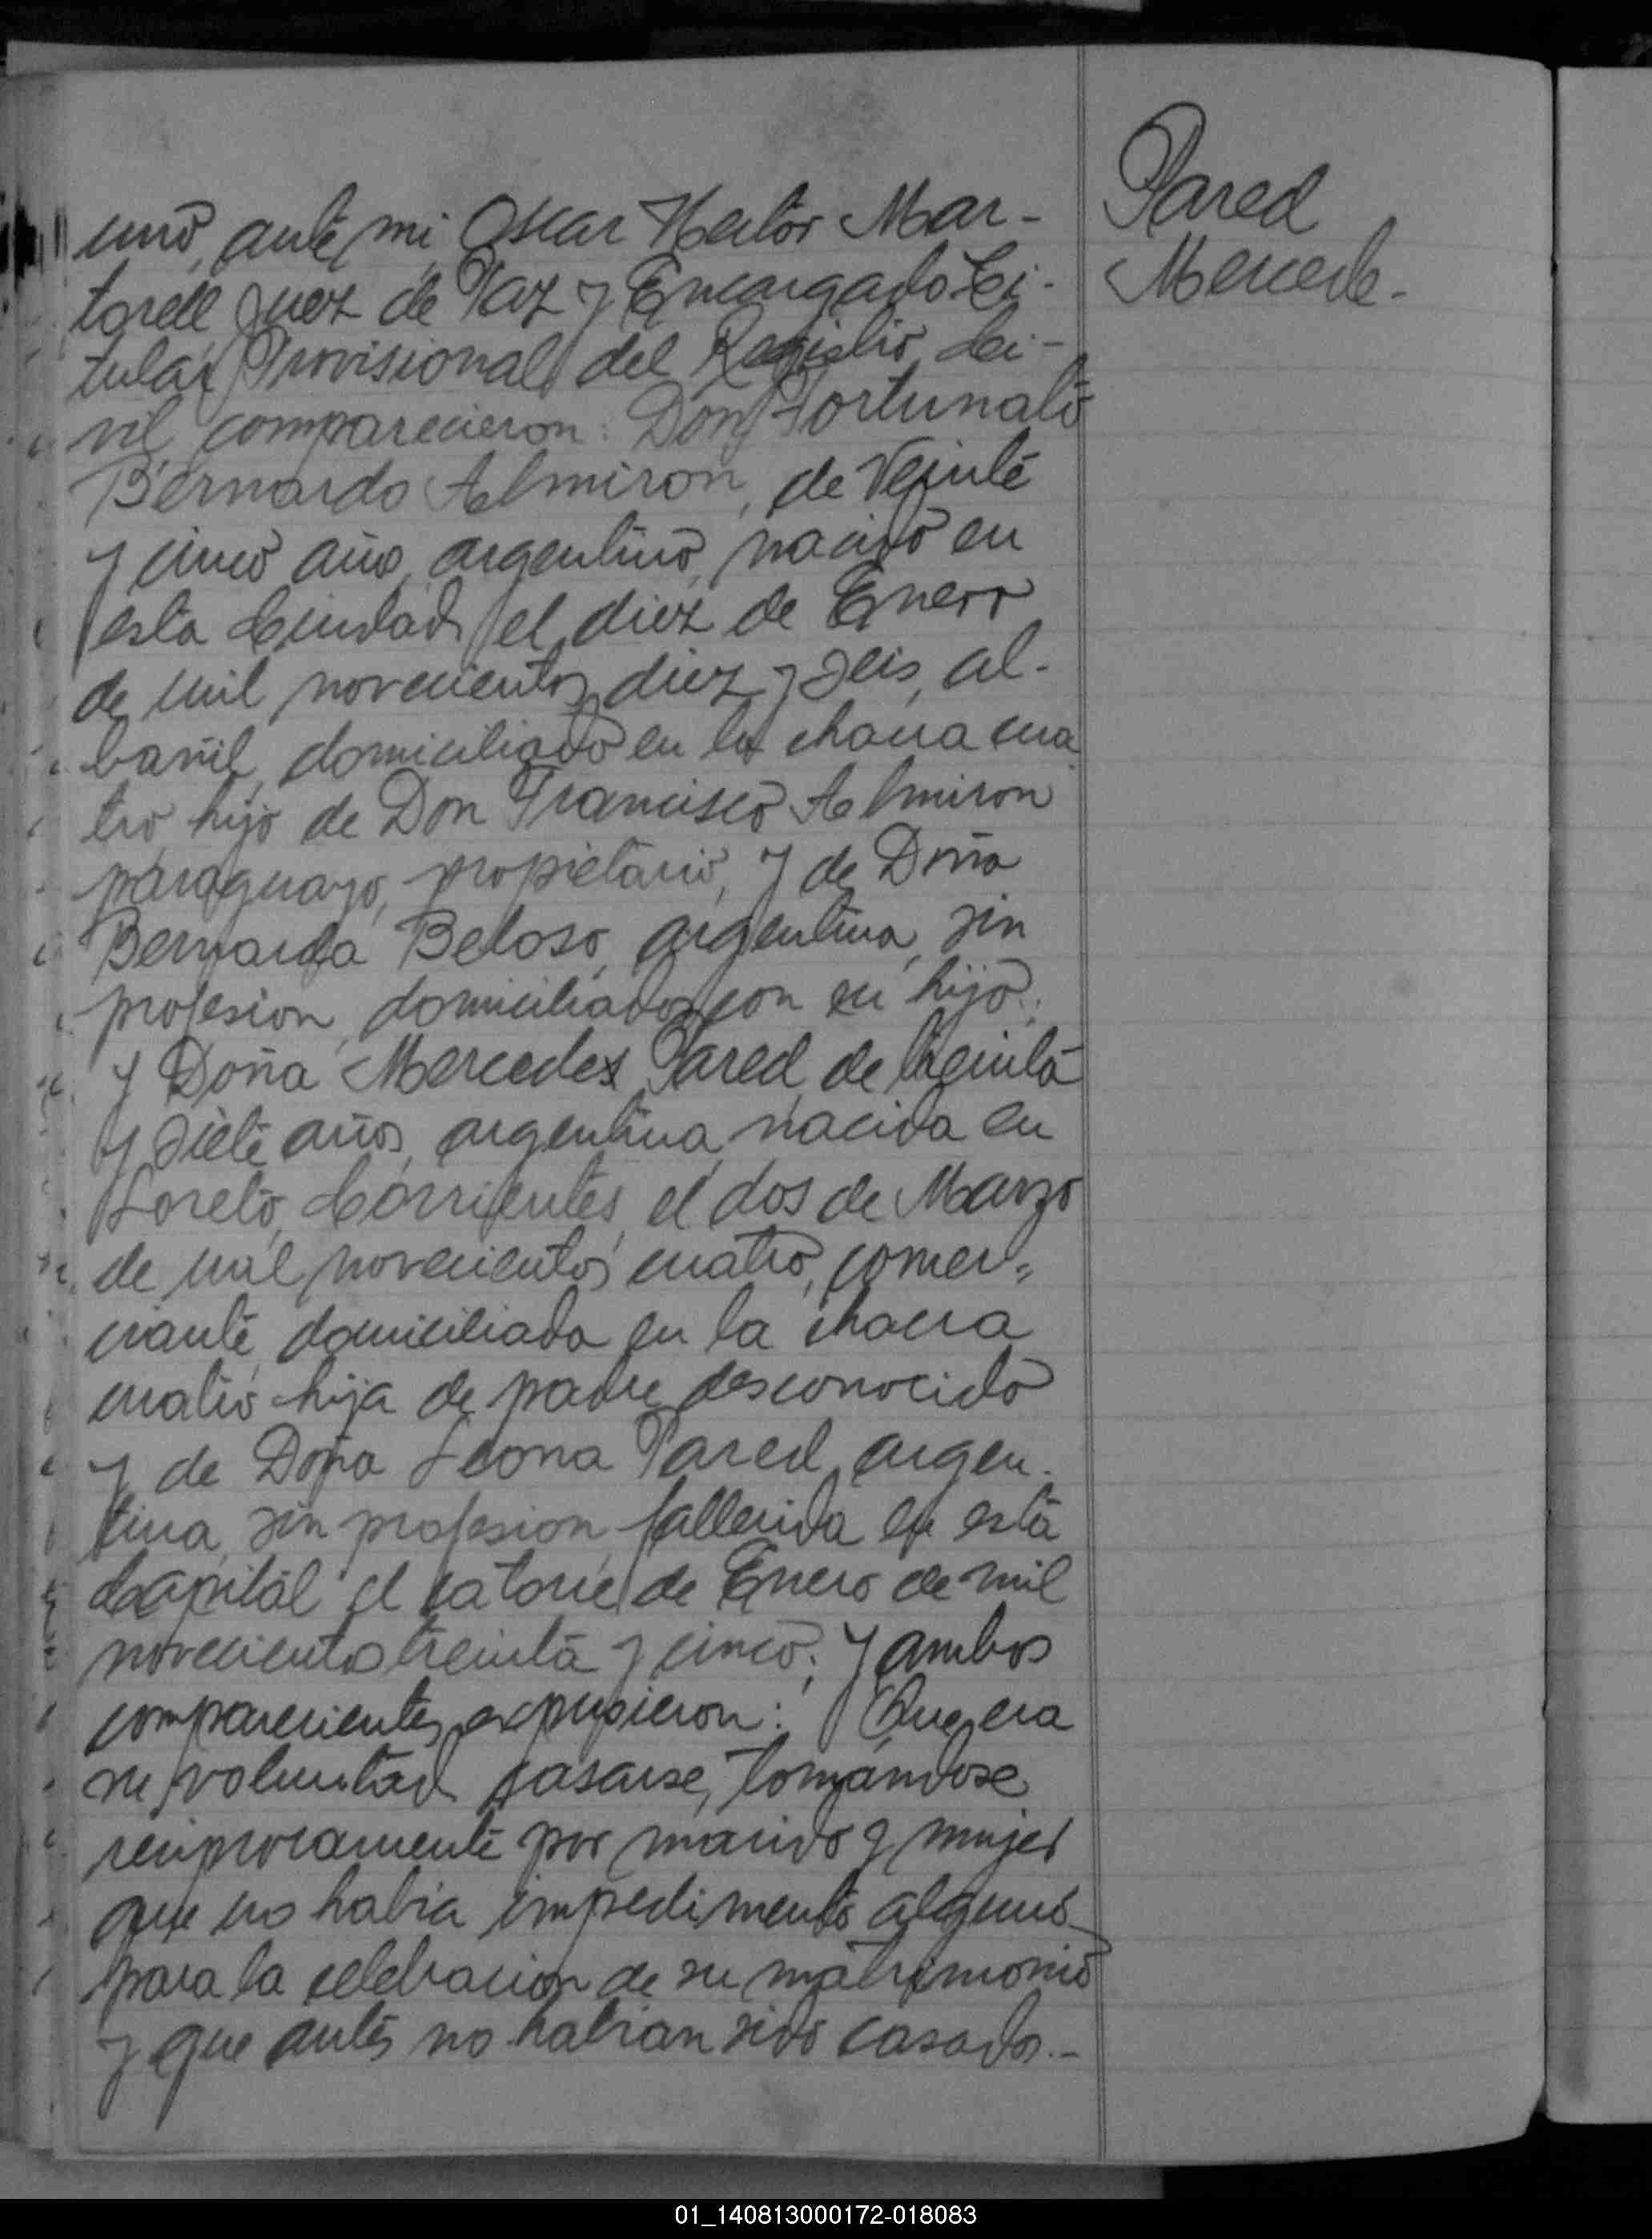 uno, ante mi Oscar Hector Mar-
torell Juez de Paz y Encargado Ti-
tular Provisional del Registro Ci-
vil comparecieron: Don Fortunato
Bernardo Almiron, de Veinte
y cinco años, argentino, nacido en
esta Ciudad el diez de Enero
de mil novecientos diez y seis, al-
bañil, domiciliado en la chacra cua
tro, hijo de Don Francisco Almiron
paraguayo, propietario, y de Doña
Bernarda Beloso, argentina, sin
profesion, domiciliados con su hijo;
y Doña Mercedes Pared, de treinta
y siete años, argentina, nacida en
Loreto, Corrientes, el dos de Marzo
de mil novecientos cuatro, comer-
ciante, domiciliada en la chacra
cuatro hija de padre desconocido
y de Doña Leona Pared, argen-
tina, sin profesion, fallecida en esta
Capital el catorce de Enero de mil
novecientos treinta y cinco; y ambos
comparecientes expusieron: Que era
su voluntad casarse, tomándose
reciprocamente por marido y mujer
que no habia impedimento alguno
para la celebracion de su matrimonio
y que antes no habian sido casados.-
Pared
Mercede-
01_140813000172-018083